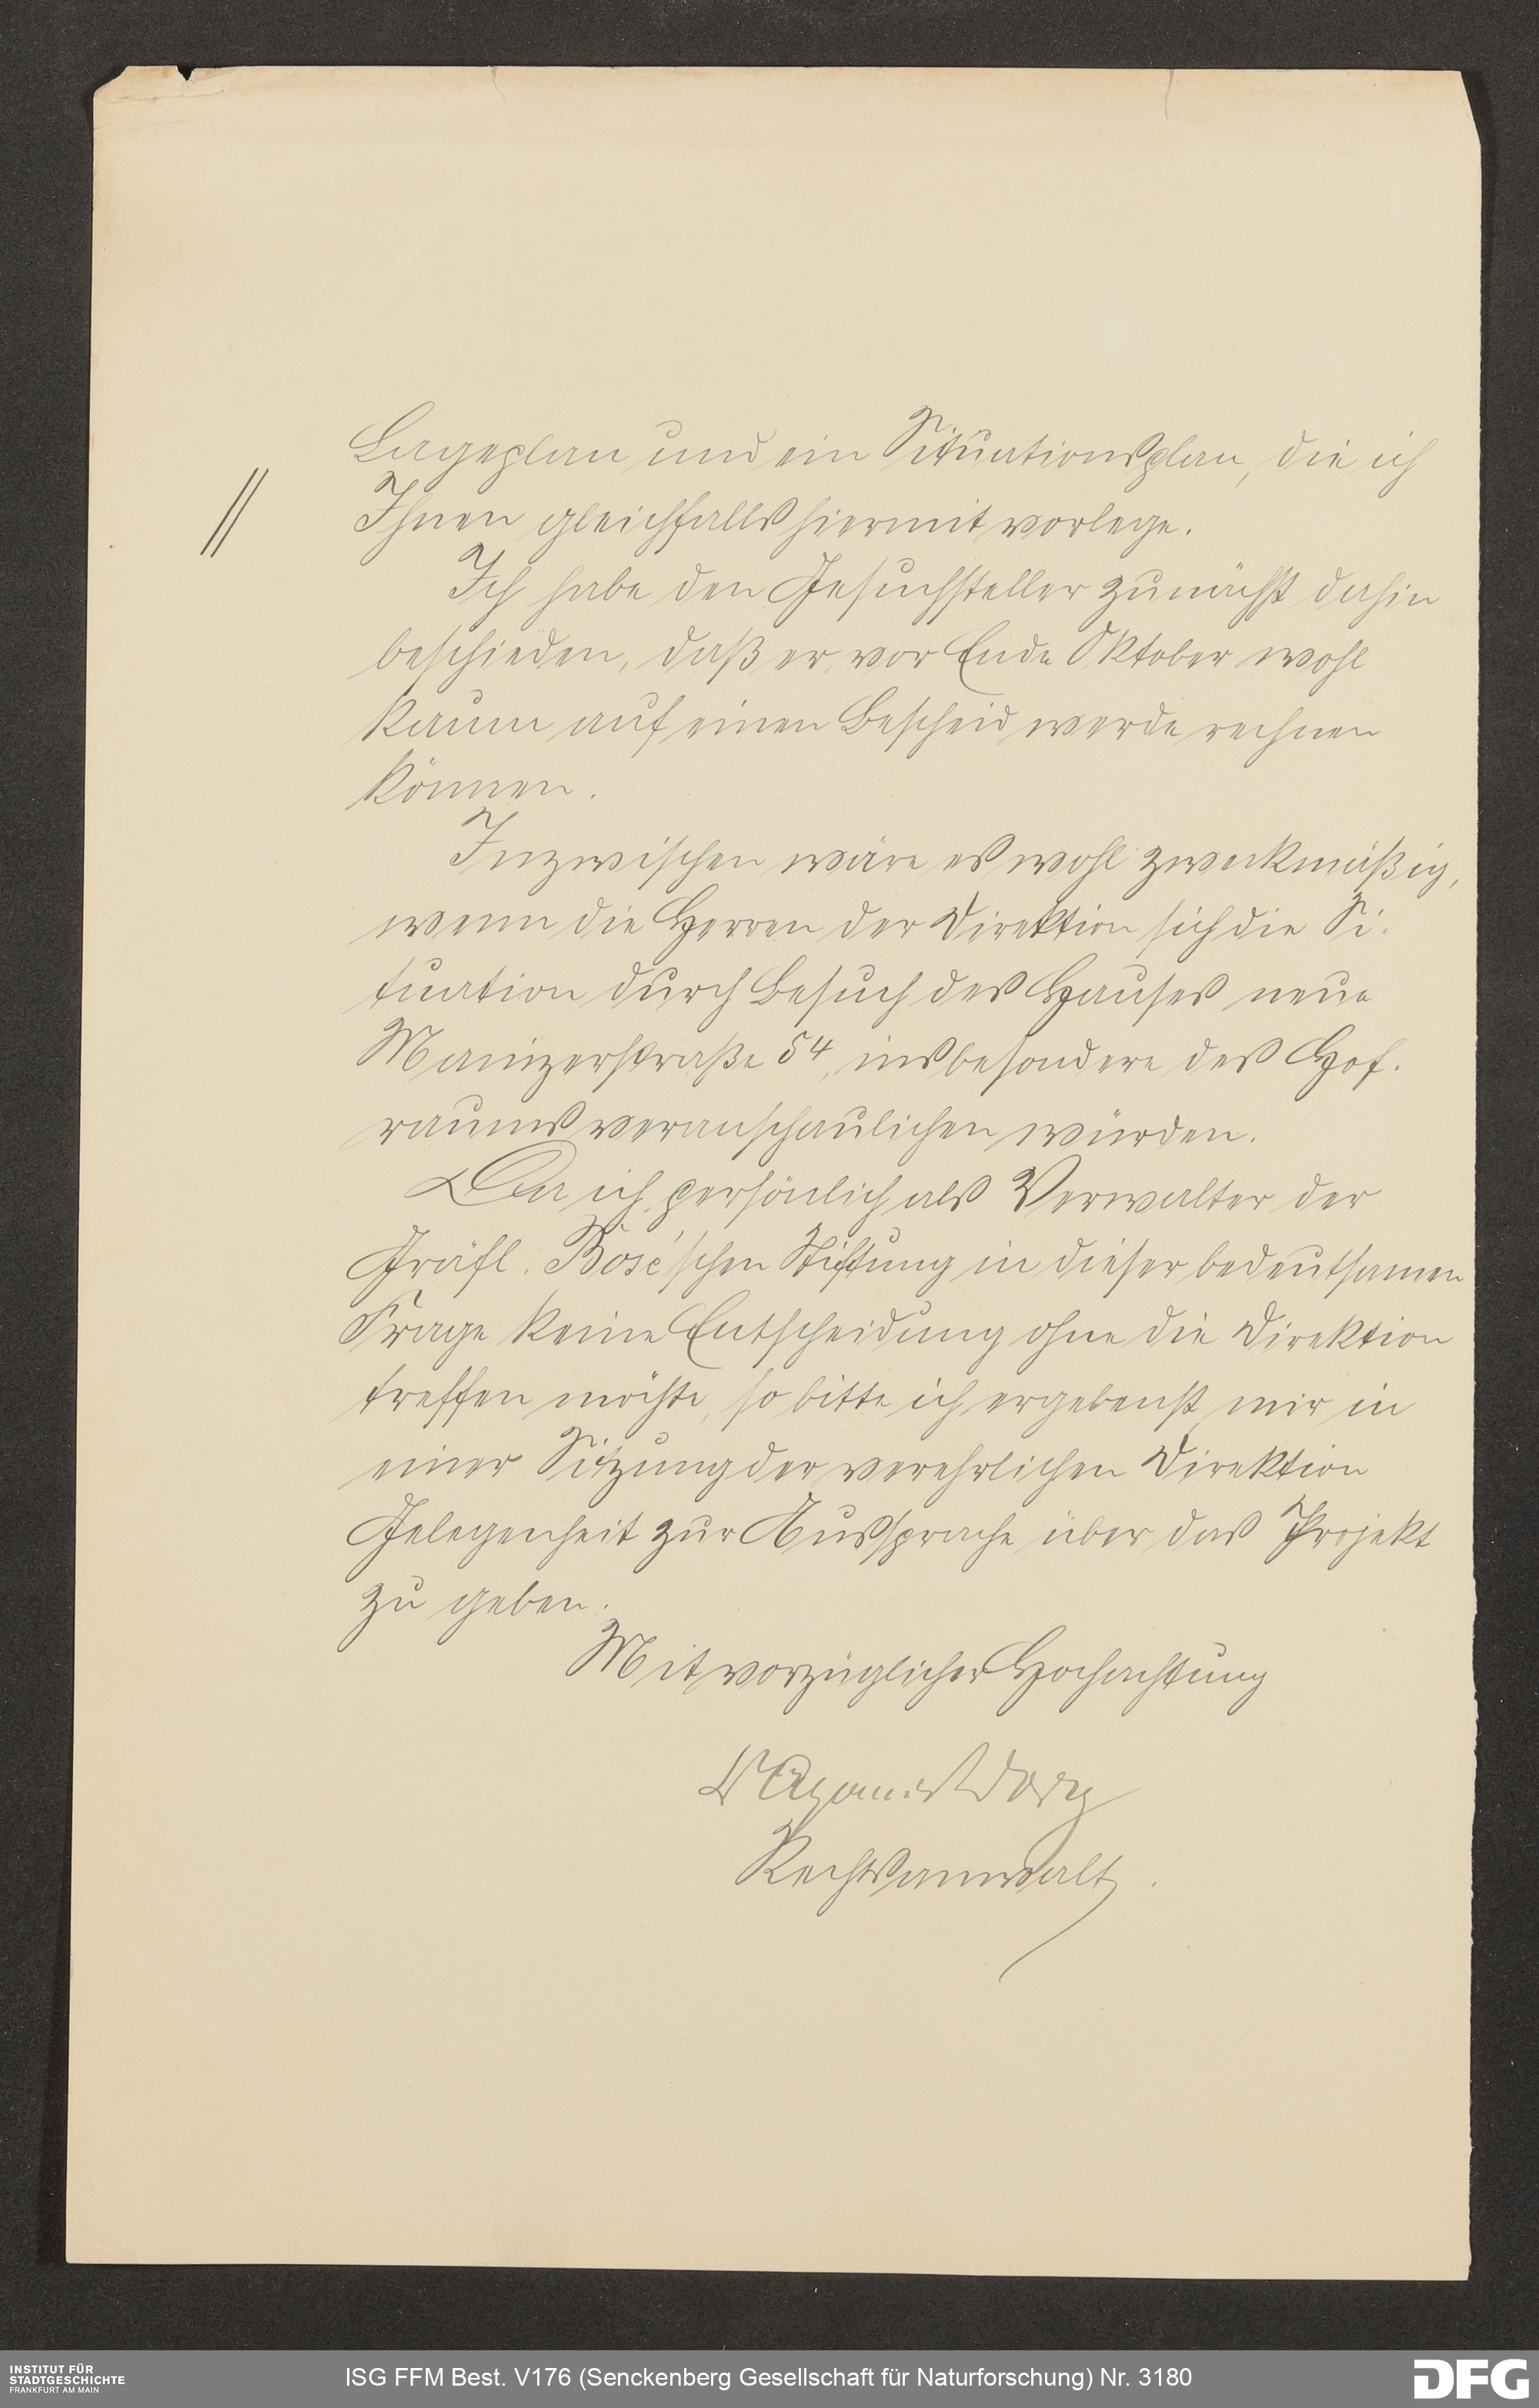 Lageplan und ein Situationsplan, die ich
Ihnen gleichfalls hiermit vorlege.
Ich habe den Gesuchsteller zunächst dahin
beschieden, daß er vor Ende Oktober wohl
kaum auf einen Bescheid werde rechnen
können.
Inzwischen wäre es wohl zweckmäßig,
wenn die Herren der Direktion sich die Si-
tuation durch Besuch des Hauses neue
Mainzerstraße 54, insbesondere des Hof-
raums veranschaulichen würden.
Da ich persönlich als Verwalter der
Gräfl. Bose'schen Stiftung in dieser bedeutsamen
Frage keine Entscheidung ohne die Direktion
treffen möchte, so bitte ich ergebenst mir in
einer Sitzung der verehrlichen Direktion
Gelegenheit zur Aussprache über das Projekt
zu geben.
Mit vorzüglicher Hochachtung
Rechtsanwalt.
INSTITUT FÜR
STADTGESCHICHTE
FRANKFURT AM MAIN
ISG FFM Best. V176 (Senckenberg Gesellschaft für Naturforschung) Nr. 3180
DFG